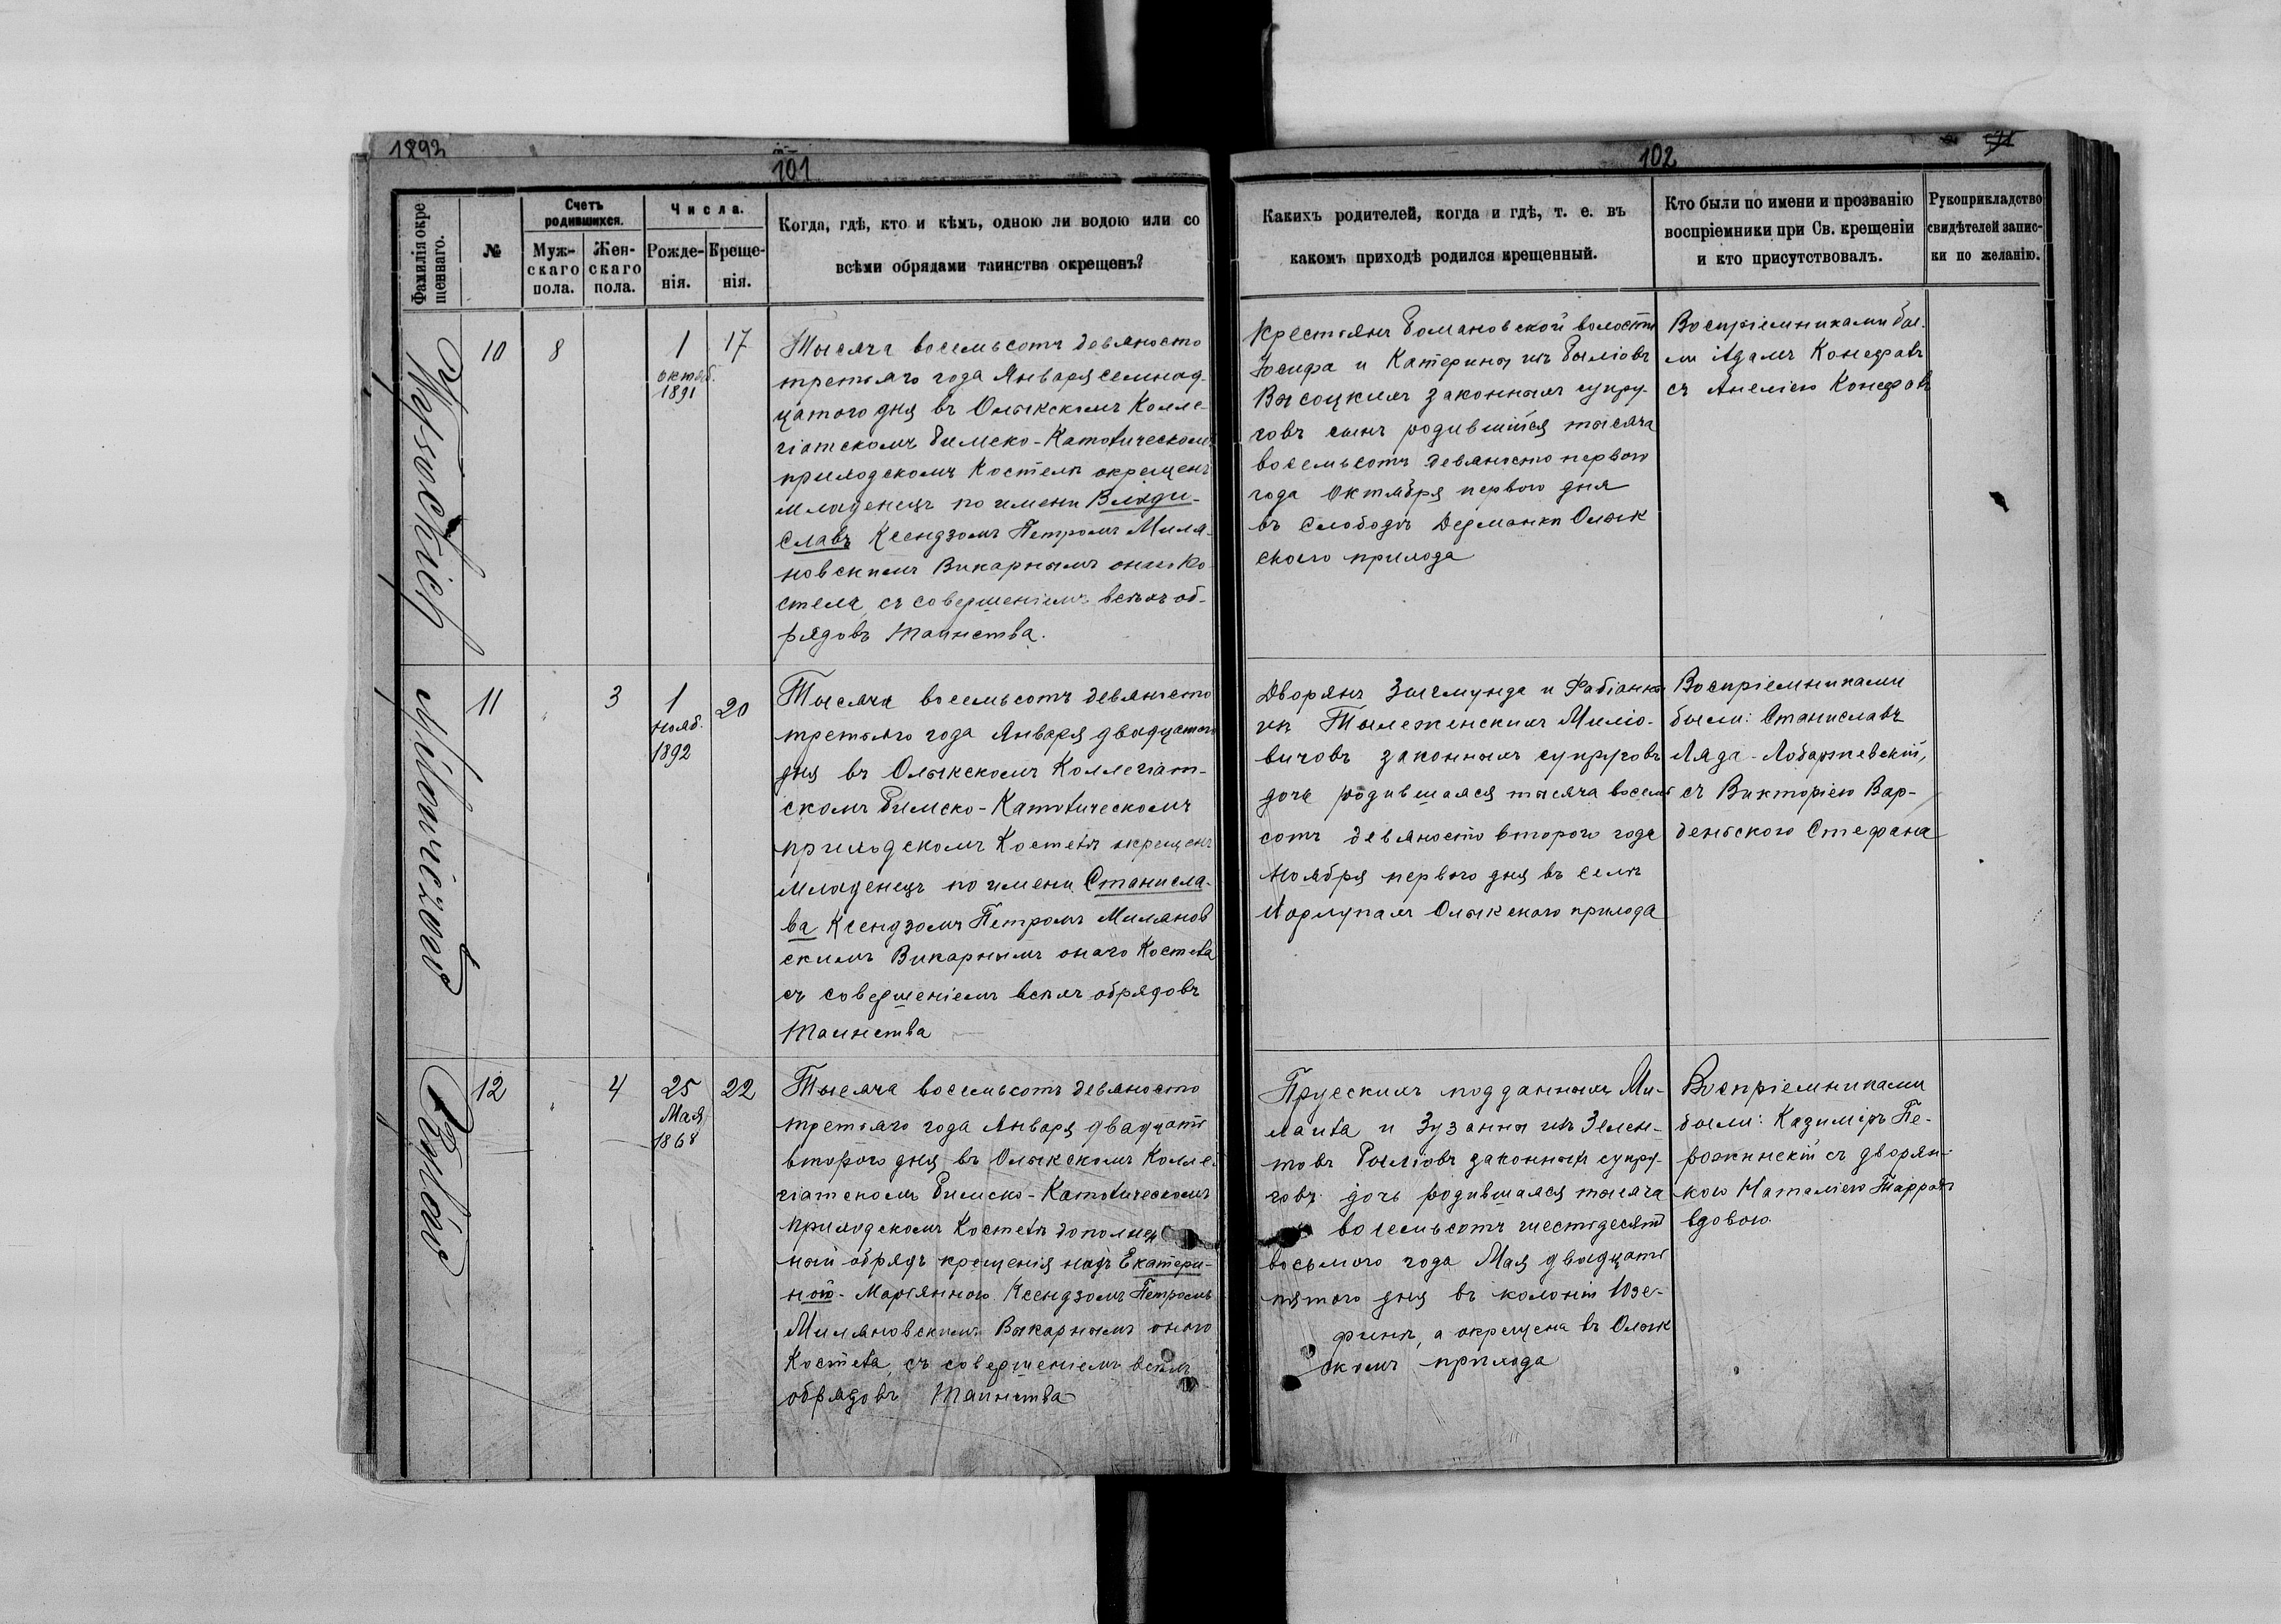 1893
101
Фамилія окре
щеннаго.
№
Счетъ
родившихся.
Муж-
скаго
пола.
Жен-
скаго
пола.
Числа.
Рожде-
нія.
Креще-
нія.
Когда, гдѣ, кто и кѣмъ, одною ли водою или со
всѣми обрядами таинства окрещенъ?
Wysockich
10
8
1
октяб.
1891
17
Тысяча восемьсотъ девяносто
третьяго года Января семнад-
цатого дня въ Олыкскомъ Колле-
гіатскомъ Римско-Католическомъ
приходскомъ Костелѣ окрещенъ
младенецъ по имени Влади-
славъ Ксендзомъ Петромъ Миля-
новскимъ Викарнымъ онаго Ко-
стела, съ совершеніемъ всѣхъ об-
рядовъ Таинства.
Milowiczów
11
3
1
нояб.
1892
20
Тысяча восемьсотъ девяносто
третьяго года Января двадцатого
дня въ Олыкскомъ Коллегіат-
скомъ Римско-Католическомъ
приходскомъ Костелѣ окрещенъ
младенецъ по имени Станисла-
ва Ксендзомъ Петромъ Милянов
скимъ Викарнымъ онаго Костела
съ совершеніемъ всѣхъ обрядовъ
Таинства
12
4
25
Мая
1868
22
Тысяча восемьсотъ девяносто
третьяго года Января двадцать
второго дня въ Олыкскомъ Колле-
гіатскомъ Римско-Католическомъ
приходскомъ Костелѣ
ный обрядъ крещенія надъ Екатери-
ной-Маріанною Ксендзомъ Петромъ
Миляновскимъ Викарнымъ оного
Костела, съ совершеніемъ всѣхъ
обрядовъ Таинства
102
Какихъ родителей, когда и гдѣ, т. е. въ
какомъ приходѣ родился крещенный.
Кто были по имени и прозванію
воспріемники при Св. крещеніи
и кто присутствовалъ.
Рукоприкладство
свидѣтелей запис-
ки по желанію.
Крестьянъ Романовской волости
Іосифа и Катерины изъ Рыліовъ
Высоцкихъ законныхъ супру-
говъ сынъ родившійся тысяча
восемьсотъ девяносто первого
года Октября первого дня
въ Слободѣ Дерманки Олык
ского прихода
Воспріемниками бы-
ли Адамъ
съ Анеліею
Дворянъ Зыгмунда и Фабіанны
изъ Миліо-
вичовъ законныхъ супруговъ
дочь родившаяся тысяча восемь
сотъ девяносто второго года
Ноября первого дня въ селѣ
Олыкского прихода
Воспріемниками
были: Станиславъ
Ляда-Лобаржевскій,
съ Викторіею Вар-
денського Стефана
Прусскихъ подданныхъ Ми-
хаила и Зузанны изъ Зелен-
товъ Рыліовъ законныхъ супру-
говъ дочь родившаяся тысяча
восемьсотъ шестьдесятъ
восьмого года Мая двадцать
пятого дня въ колоніи Юзе-
финѣ, а окрещена въ Олык
скомъ прихода
Воспріемниками
были: Казиміръ Пе-
рожинскій съ дворян-
кою Наталіею
вдовою.